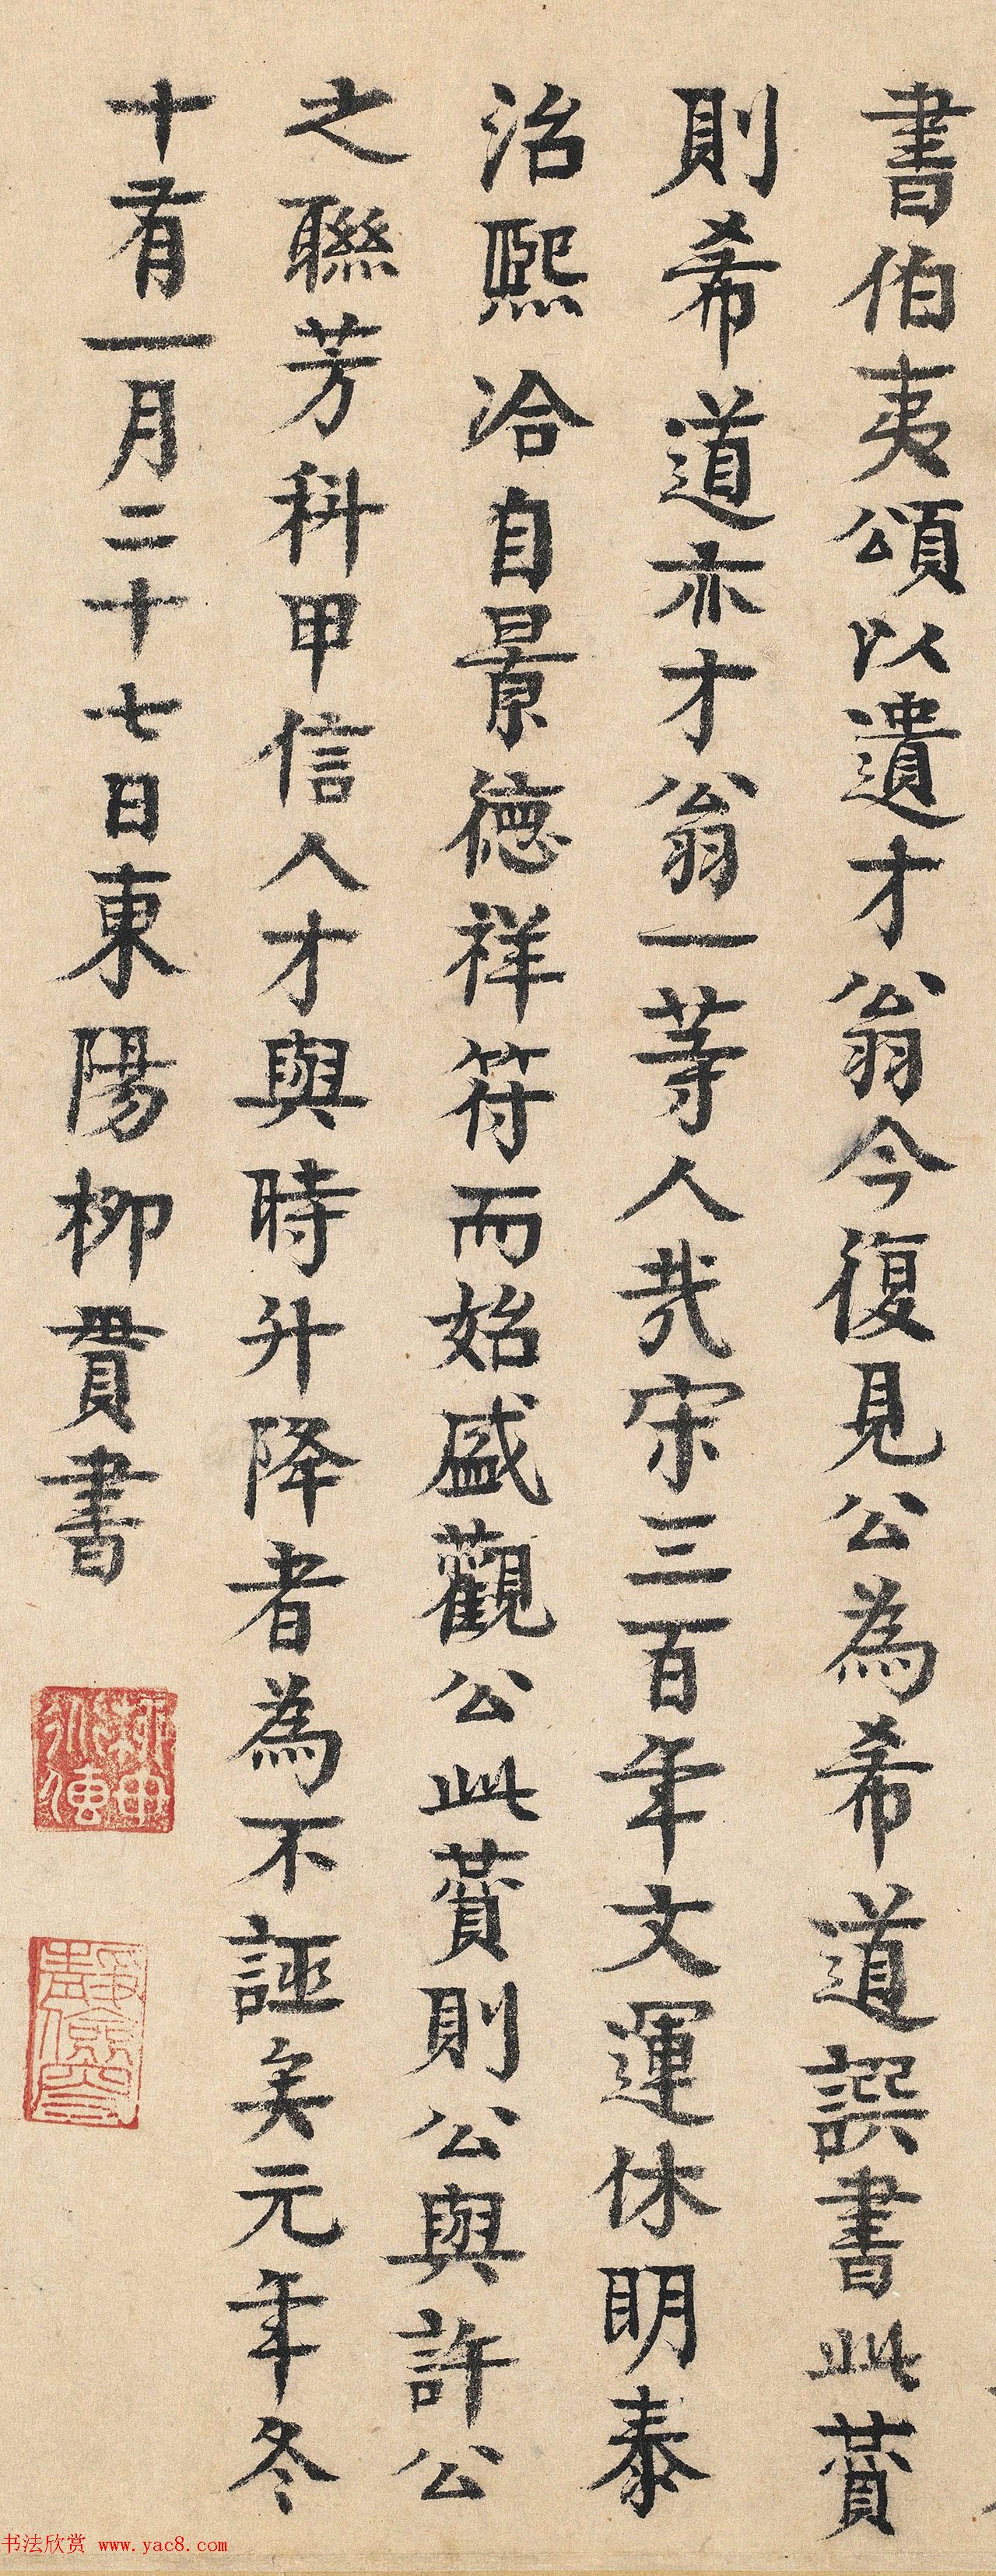 書伯夷頌以遺才翁今復見公為希道譔書此賛
則希道亦才翁一等人哉宋三百年文運休明泰
治熙洽自景德祥符而始盛觀公此賛則公與許公
之聯芳科甲信人才與時升降者為不誣矣元年冬
十有一月二十七日東陽柳貫書
书法欣赏 www.yac8.com